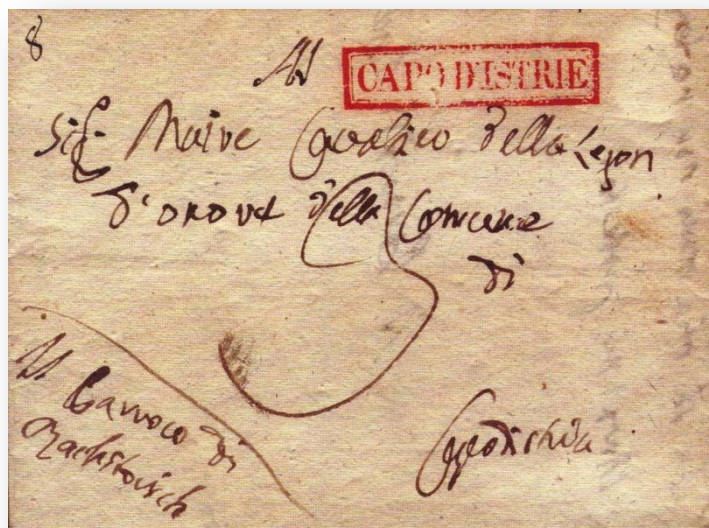 8
Al
CAPO D'ISTRIE
Sig. Maire Cavalier della Legion
d'onore della Comune
di
Capodistria
Il Parroco di